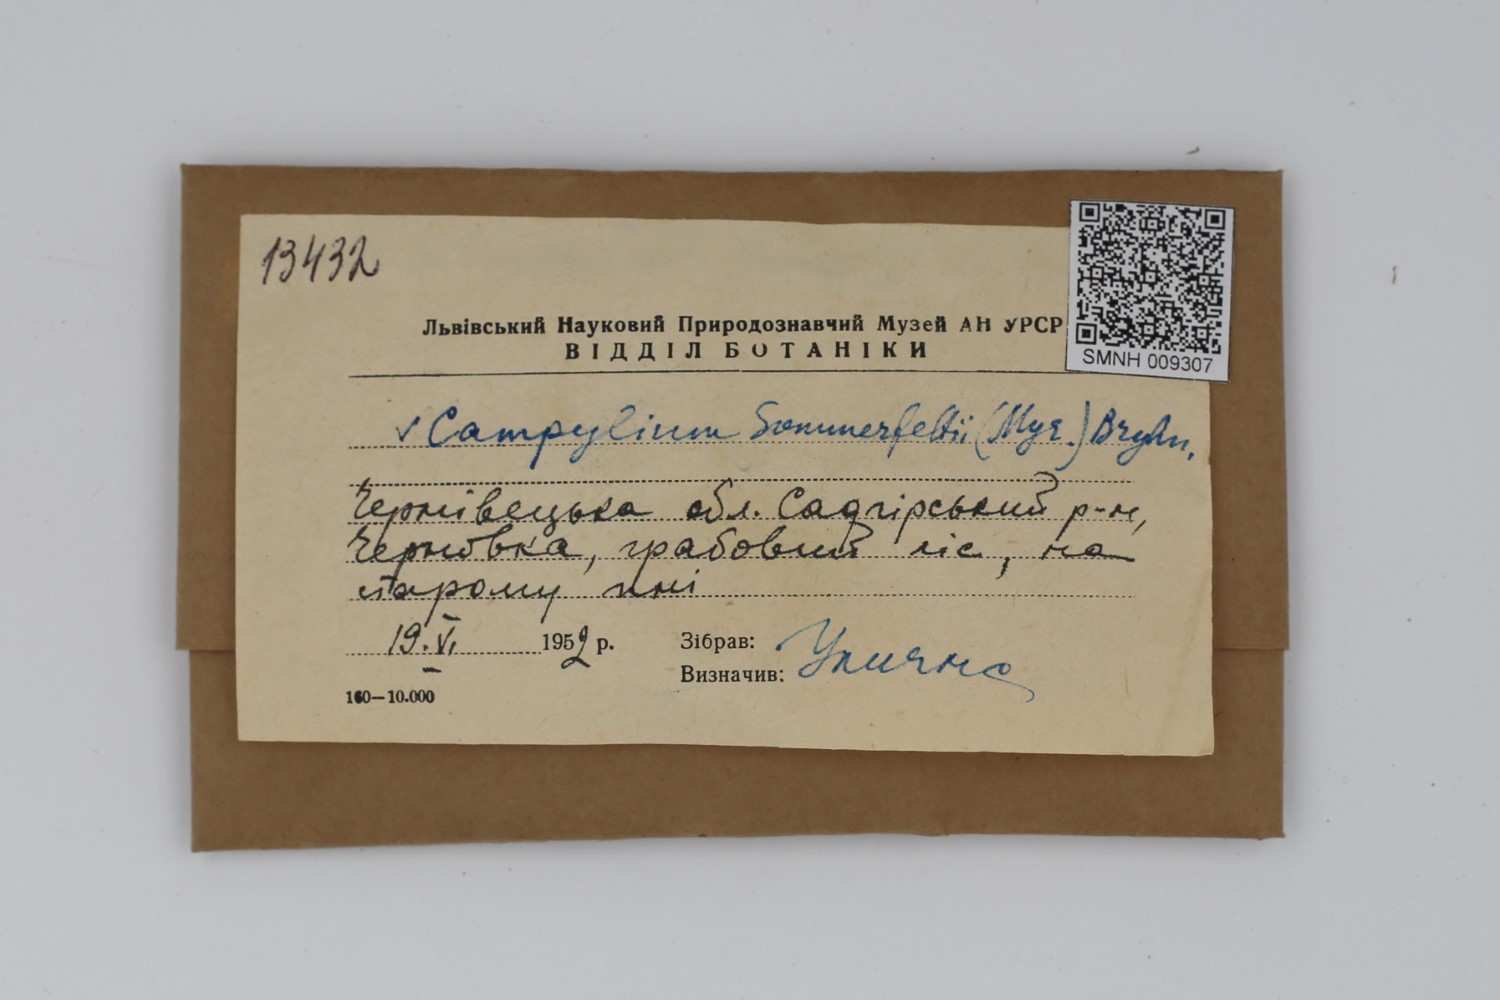 13432
Львівський Науковий Природознавчий Музей АН УРСР
ВІДДІЛ БОТАНІКИ
SMNH 009307
✓ Campylium Sommerfeltii (Myr.) Bryhn.
Чернівецька обл. Садгірський р-н,
Чернівка, грабовий ліс, на
старому пні
19.VI. 1952 р.
Зібрав:
Визначив: Улична
160—10.000